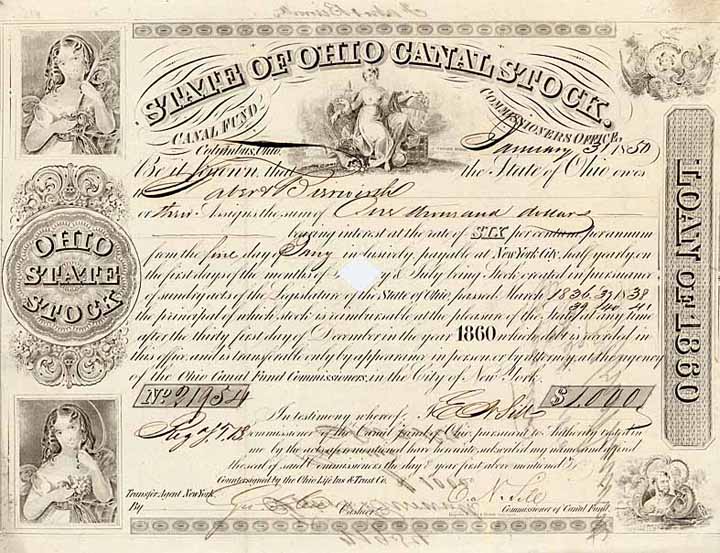 STATE OF OHIO CANAL STOCK.
CANAL FUND
COMMISSIONERS OFFICE,
Columbus, Ohio, January 3, 1850
Be it known, that the State of Ohio owes
to
or their Assigns the sum of One thousand dollars
bearing interest at the rate of SIX per centum per annum
from the first day of inclusively, payable at New York City, half yearly on
the first days of the months of & July being Stock created in pursuance
of sundry acts of the Legislature of the State of Ohio passed March 1836, 37, 1838
39, 40
the principal of which stock is reimbursable at the pleasure of the State at any time
after the thirty first day of December in the year 1860 which debt is recorded in
this office and is transferable only by appearing in person or by attorney, at the agency
of the Ohio Canal Fund Commissioners, in the City of New York.
No. 21954
$1,000
In testimony whereof, I E N Sill
Commissioner of the Canal fund of Ohio pursuant to Authority vested in
me by the acts aforementioned have hereunto subscribed my name and affixed
the seal of said Commissioners the day & year first above mentioned
Countersigned by the Ohio Life Ins & Trust Co.
Transfer Agent New York.
By
Cashier
E. N. Sill
Commissioner of Canal Fund.
OHIO
STATE
STOCK
LOAN OF 1860